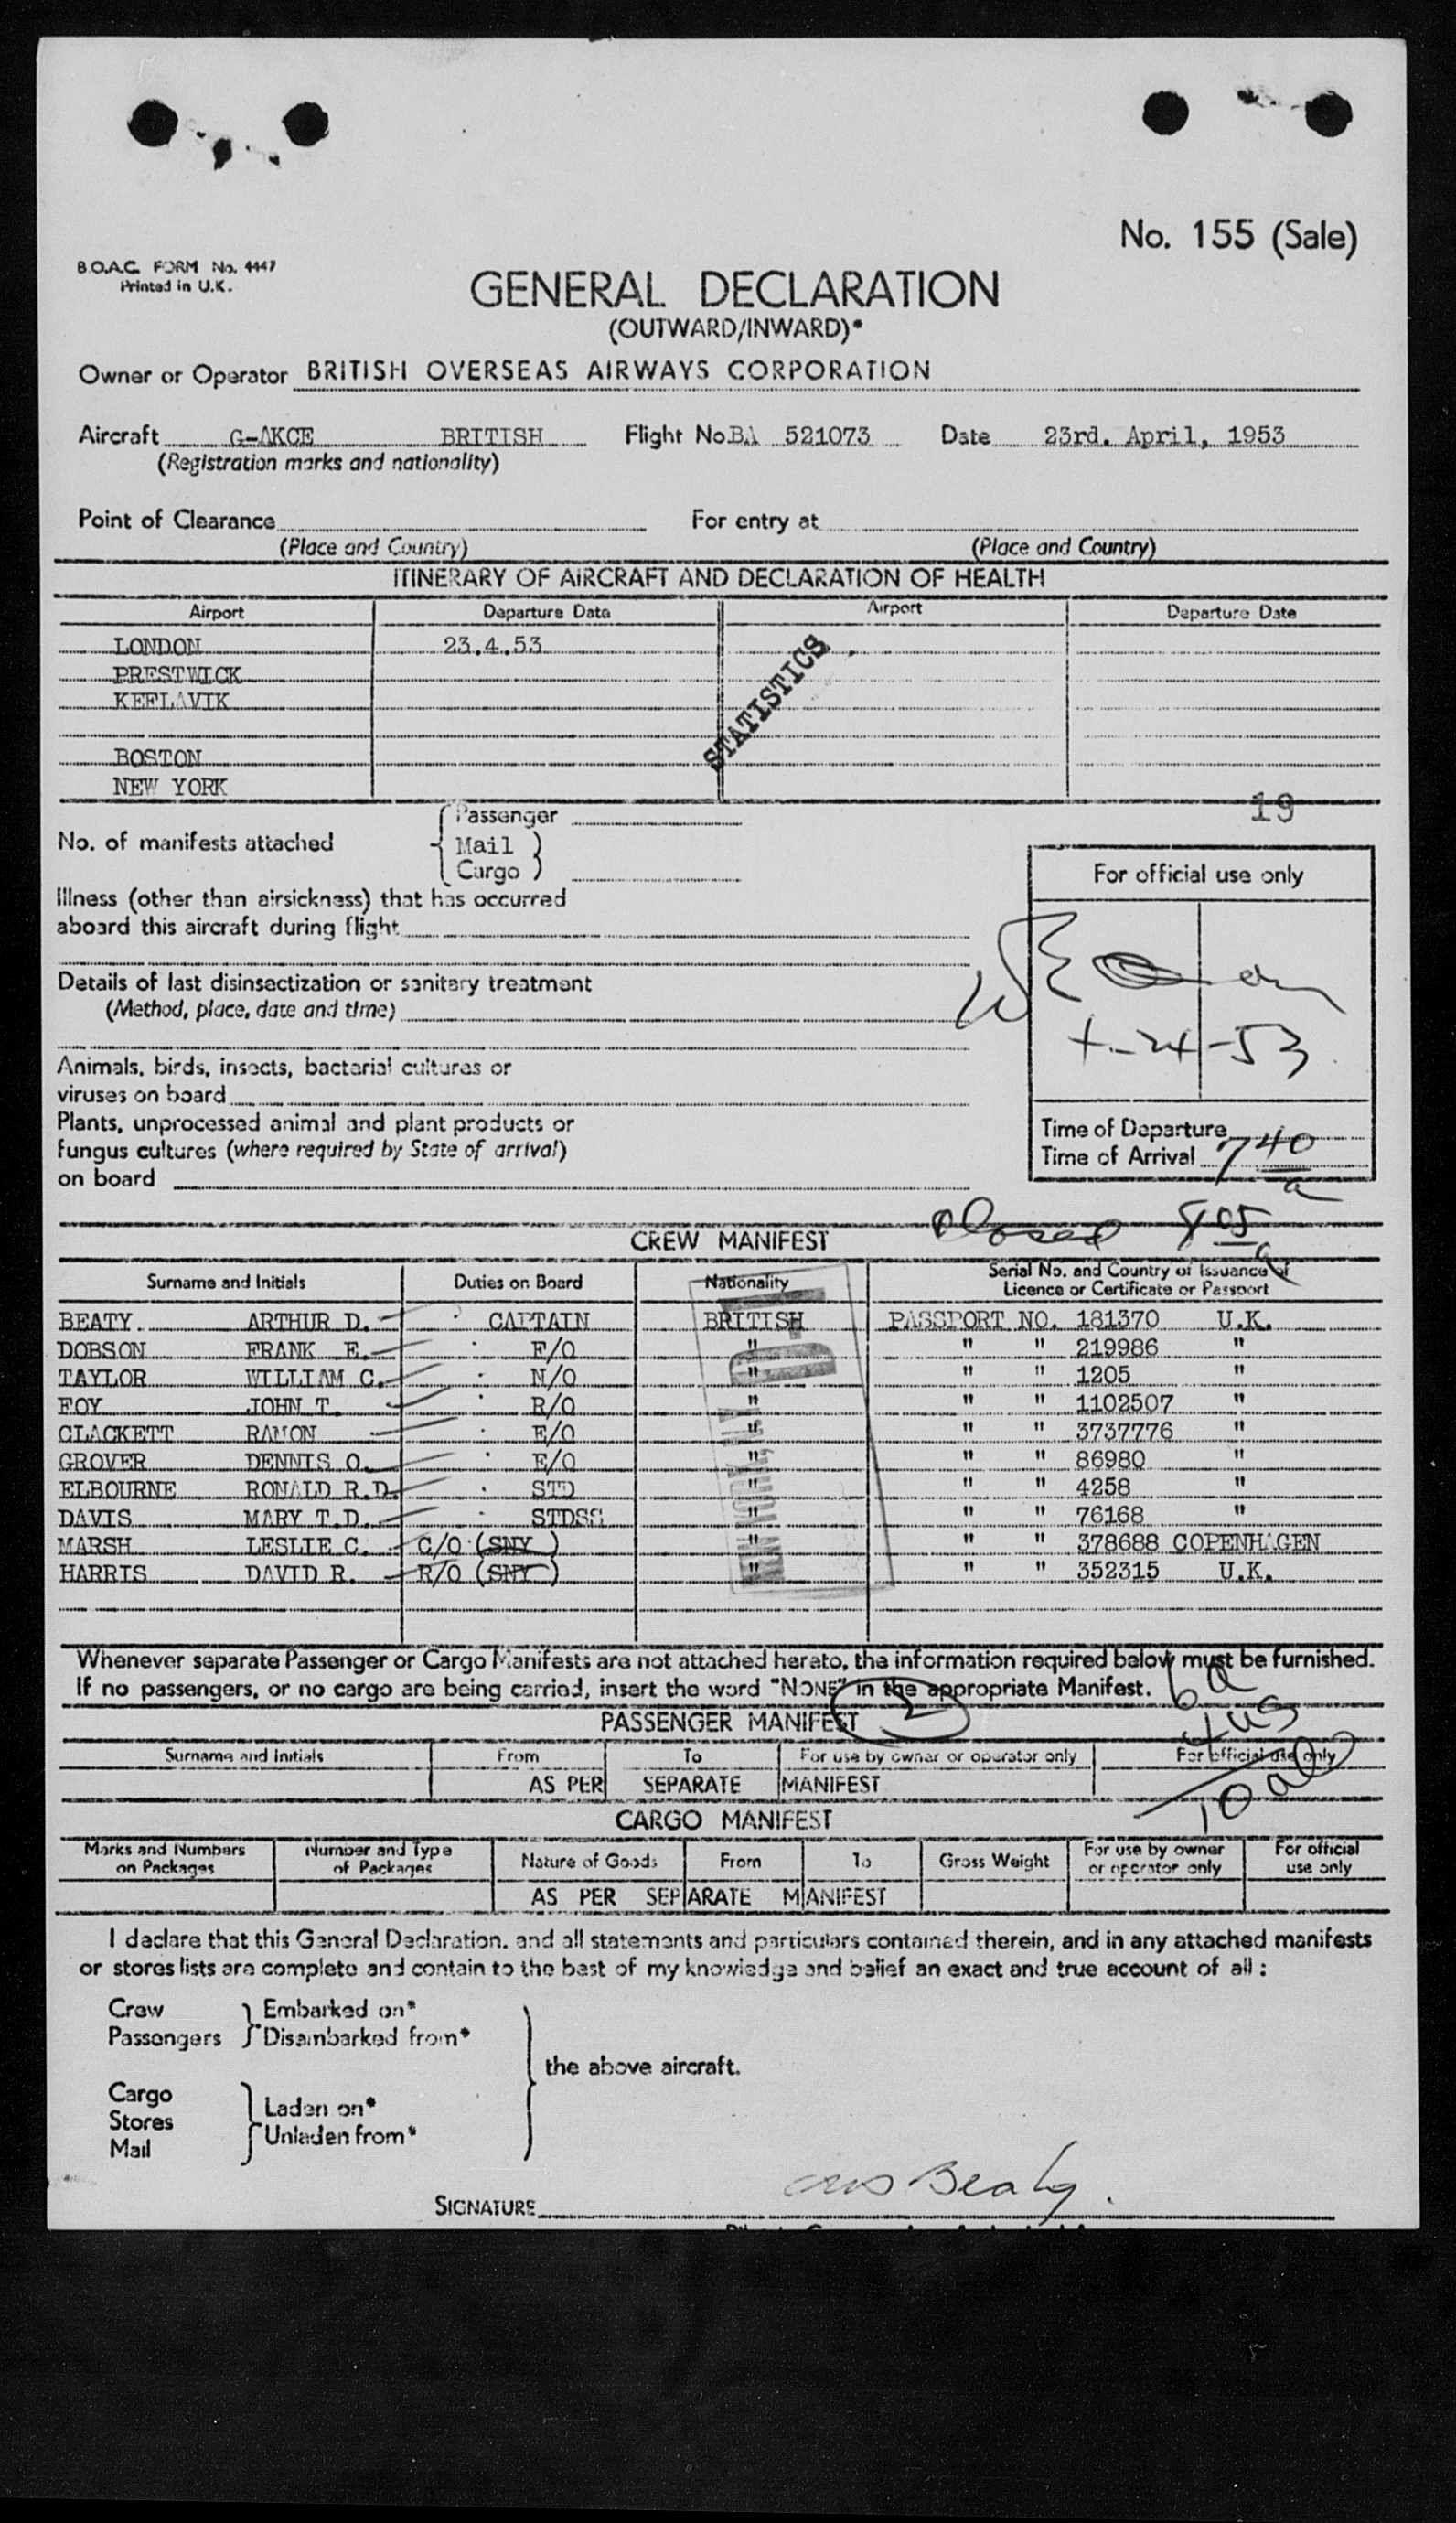 No. 155 (Sale)
B.O.A.C. FORM No. 4447
Printed in U.K.
GENERAL DECLARATION
(OUTWARD/INWARD)*
Owner or Operator BRITISH OVERSEAS AIRWAYS CORPORATION
Aircraft G-AKCE BRITISH Flight No. BA 521073 Date 23rd. April, 1953
(Registration marks and nationality)
Point of Clearance For entry at
(Place and Country) (Place and Country)
ITINERARY OF AIRCRAFT AND DECLARATION OF HEALTH
Airport Departure Date Airport Departure Date
LONDON 23.4.53
PRESTWICK
KEFLAVIK
STATISTICS
BOSTON
NEW YORK
19
No. of manifests attached { Passenger
Mail )
Cargo )
For official use only
Illness (other than airsickness) that has occurred
aboard this aircraft during flight
Details of last disinsectization or sanitary treatment
(Method, place, date and time)
4-24-53
Animals, birds, insects, bacterial cultures or
viruses on board
Plants, unprocessed animal and plant products or
fungus cultures (where required by State of arrival)
on board
Time of Departure
Time of Arrival 7 40 a
closed 8 05 a
CREW MANIFEST
Surname and Initials Duties on Board Nationality Serial No. and Country of Issuance of
Licence or Certificate or Passport
BEATY ARTHUR D. CAPTAIN BRITISH PASSPORT NO. 181370 U.K.
DOBSON FRANK E. F/O " " " 219986 "
TAYLOR WILLIAM C. N/O " " " 1205 "
FOY JOHN T. R/O " " " 1102507 "
CLACKETT RAMON E/O " " " 3737776 "
GROVER DENNIS O. E/O " " " 86980 "
ELBOURNE RONALD R.D. STD " " " 4258 "
DAVIS MARY T.D. STDSS " " " 76168 "
MARSH LESLIE C. C/O (SNY ) " " " 378688 COPENHAGEN
HARRIS DAVID R. R/O (SNY ) " " " 352315 U.K.
Whenever separate Passenger or Cargo Manifests are not attached hereto, the information required below must be furnished.
If no passengers, or no cargo are being carried, insert the word "NONE" in the appropriate Manifest.
2
6a
4us
10
PASSENGER MANIFEST
Surname and Initials From To For use by owner or operator only For official use only
AS PER SEPARATE MANIFEST
CARGO MANIFEST
Marks and Numbers on Packages Number and Type of Packages Nature of Goods From To Gross Weight For use by owner or operator only For official use only
AS PER SEPARATE MANIFEST
I declare that this General Declaration, and all statements and particulars contained therein, and in any attached manifests
or stores lists are complete and contain to the best of my knowledge and belief an exact and true account of all :
Crew } Embarked on*
Passengers } Disembarked from*
the above aircraft.
Cargo
Stores } Laden on*
Mail } Unladen from*
Beaty.
SIGNATURE